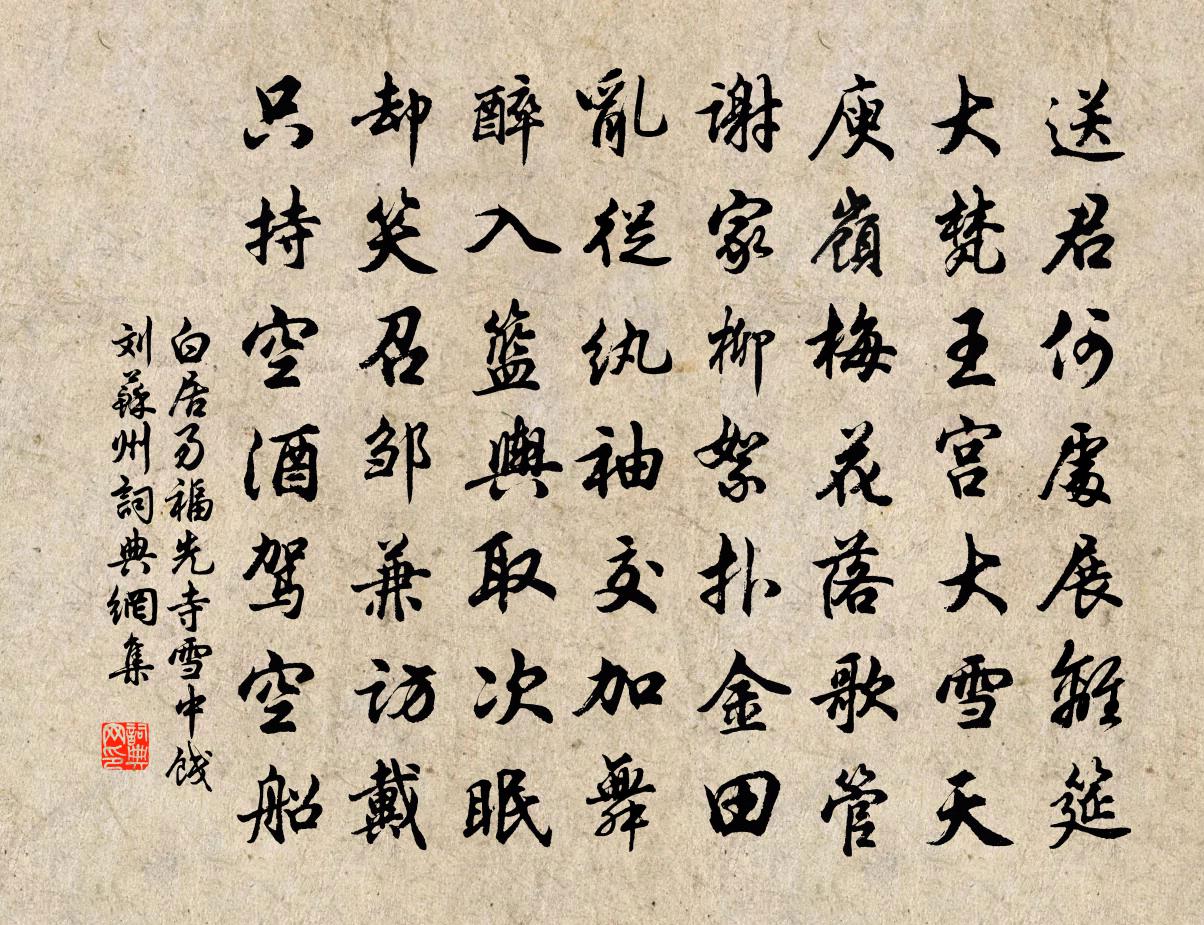 送君何處展離筵
大梵王宮大雪天
庾嶺梅花落歌管
謝家柳絮扑金田
亂從紈袖交加舞
醉入籃輿取次眠
却笑召邹兼訪戴
只持空酒駕空船
白居易福先寺雪中饯
刘蘇州詞典網集
詞典网印